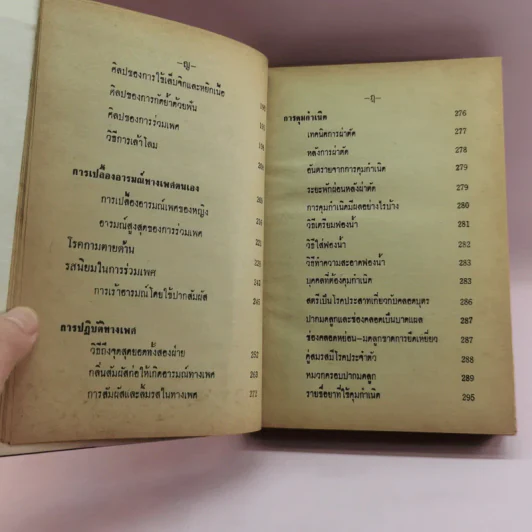 -ญ-
ศิลปของการใช้เล็บจิกและหยิกเนื้อ
ศิลปของการกัดย้ำด้วยฟัน
ศิลปของการร่วมเพศ
วิธีการเล้าโลม
การเปลื้องอารมณ์ทางเพศตนเอง
การเปลื้องอารมณ์เพศของหญิง
อารมณ์สูงสุดของการร่วมเพศ
โรคกามตายด้าน
รสนิยมในการร่วมเพศ
การเร้าอารมณ์โดยใช้ปากสัมผัส
การปฏิบัติทางเพศ
วิธีถึงจุดสุดยอดทั้งสองฝ่าย 252
กลิ่นสัมผัสก่อให้เกิดอารมณ์ทางเพศ 263
การสัมผัสและลิ้มรสในทางเพศ 272
-ฎ-
การคุมกำเนิด 276
เทคนิคการผ่าตัด 277
หลังการผ่าตัด 278
อันตรายจากการคุมกำเนิด 279
ระยะพักผ่อนหลังผ่าตัด 279
การคุมกำเนิดมีผลอย่างไรบ้าง 280
วิธีเตรียมฟองน้ำ 281
วิธีใส่ฟองน้ำ 282
วิธีทำความสะอาดฟองน้ำ 283
บุคคลที่ต้องคุมกำเนิด 283
สตรีเป็นโรคประสาทเกี่ยวกับคลอดบุตร 286
ปากมดลูกและช่องคลอดเป็นบาดแผล 287
ช่องคลอดหย่อน-มดลูกขาดการยืดเหยี่ยว 287
คู่สมรสมีโรคประจำตัว 288
หมวกครอบปากมดลูก 289
รายชื่อยาที่ใช้คุมกำเนิด 295